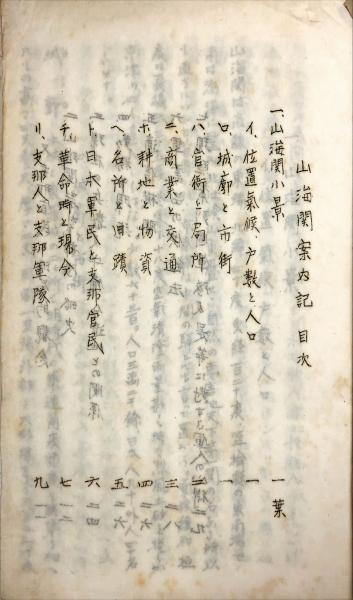 山海関案内記 目次
一、山海関小景 一葉
イ、位置氣候、戸数と人口 一
ロ、城廓と市街 一
ハ、官衙と局所 二
ニ、商業と交通 三
ホ、耕地と物資 四
ヘ、名所と旧蹟 五
ト、日本軍民と支那官民との関係 六
チ、革命時と現今 七
リ、支那人と支那軍隊 九